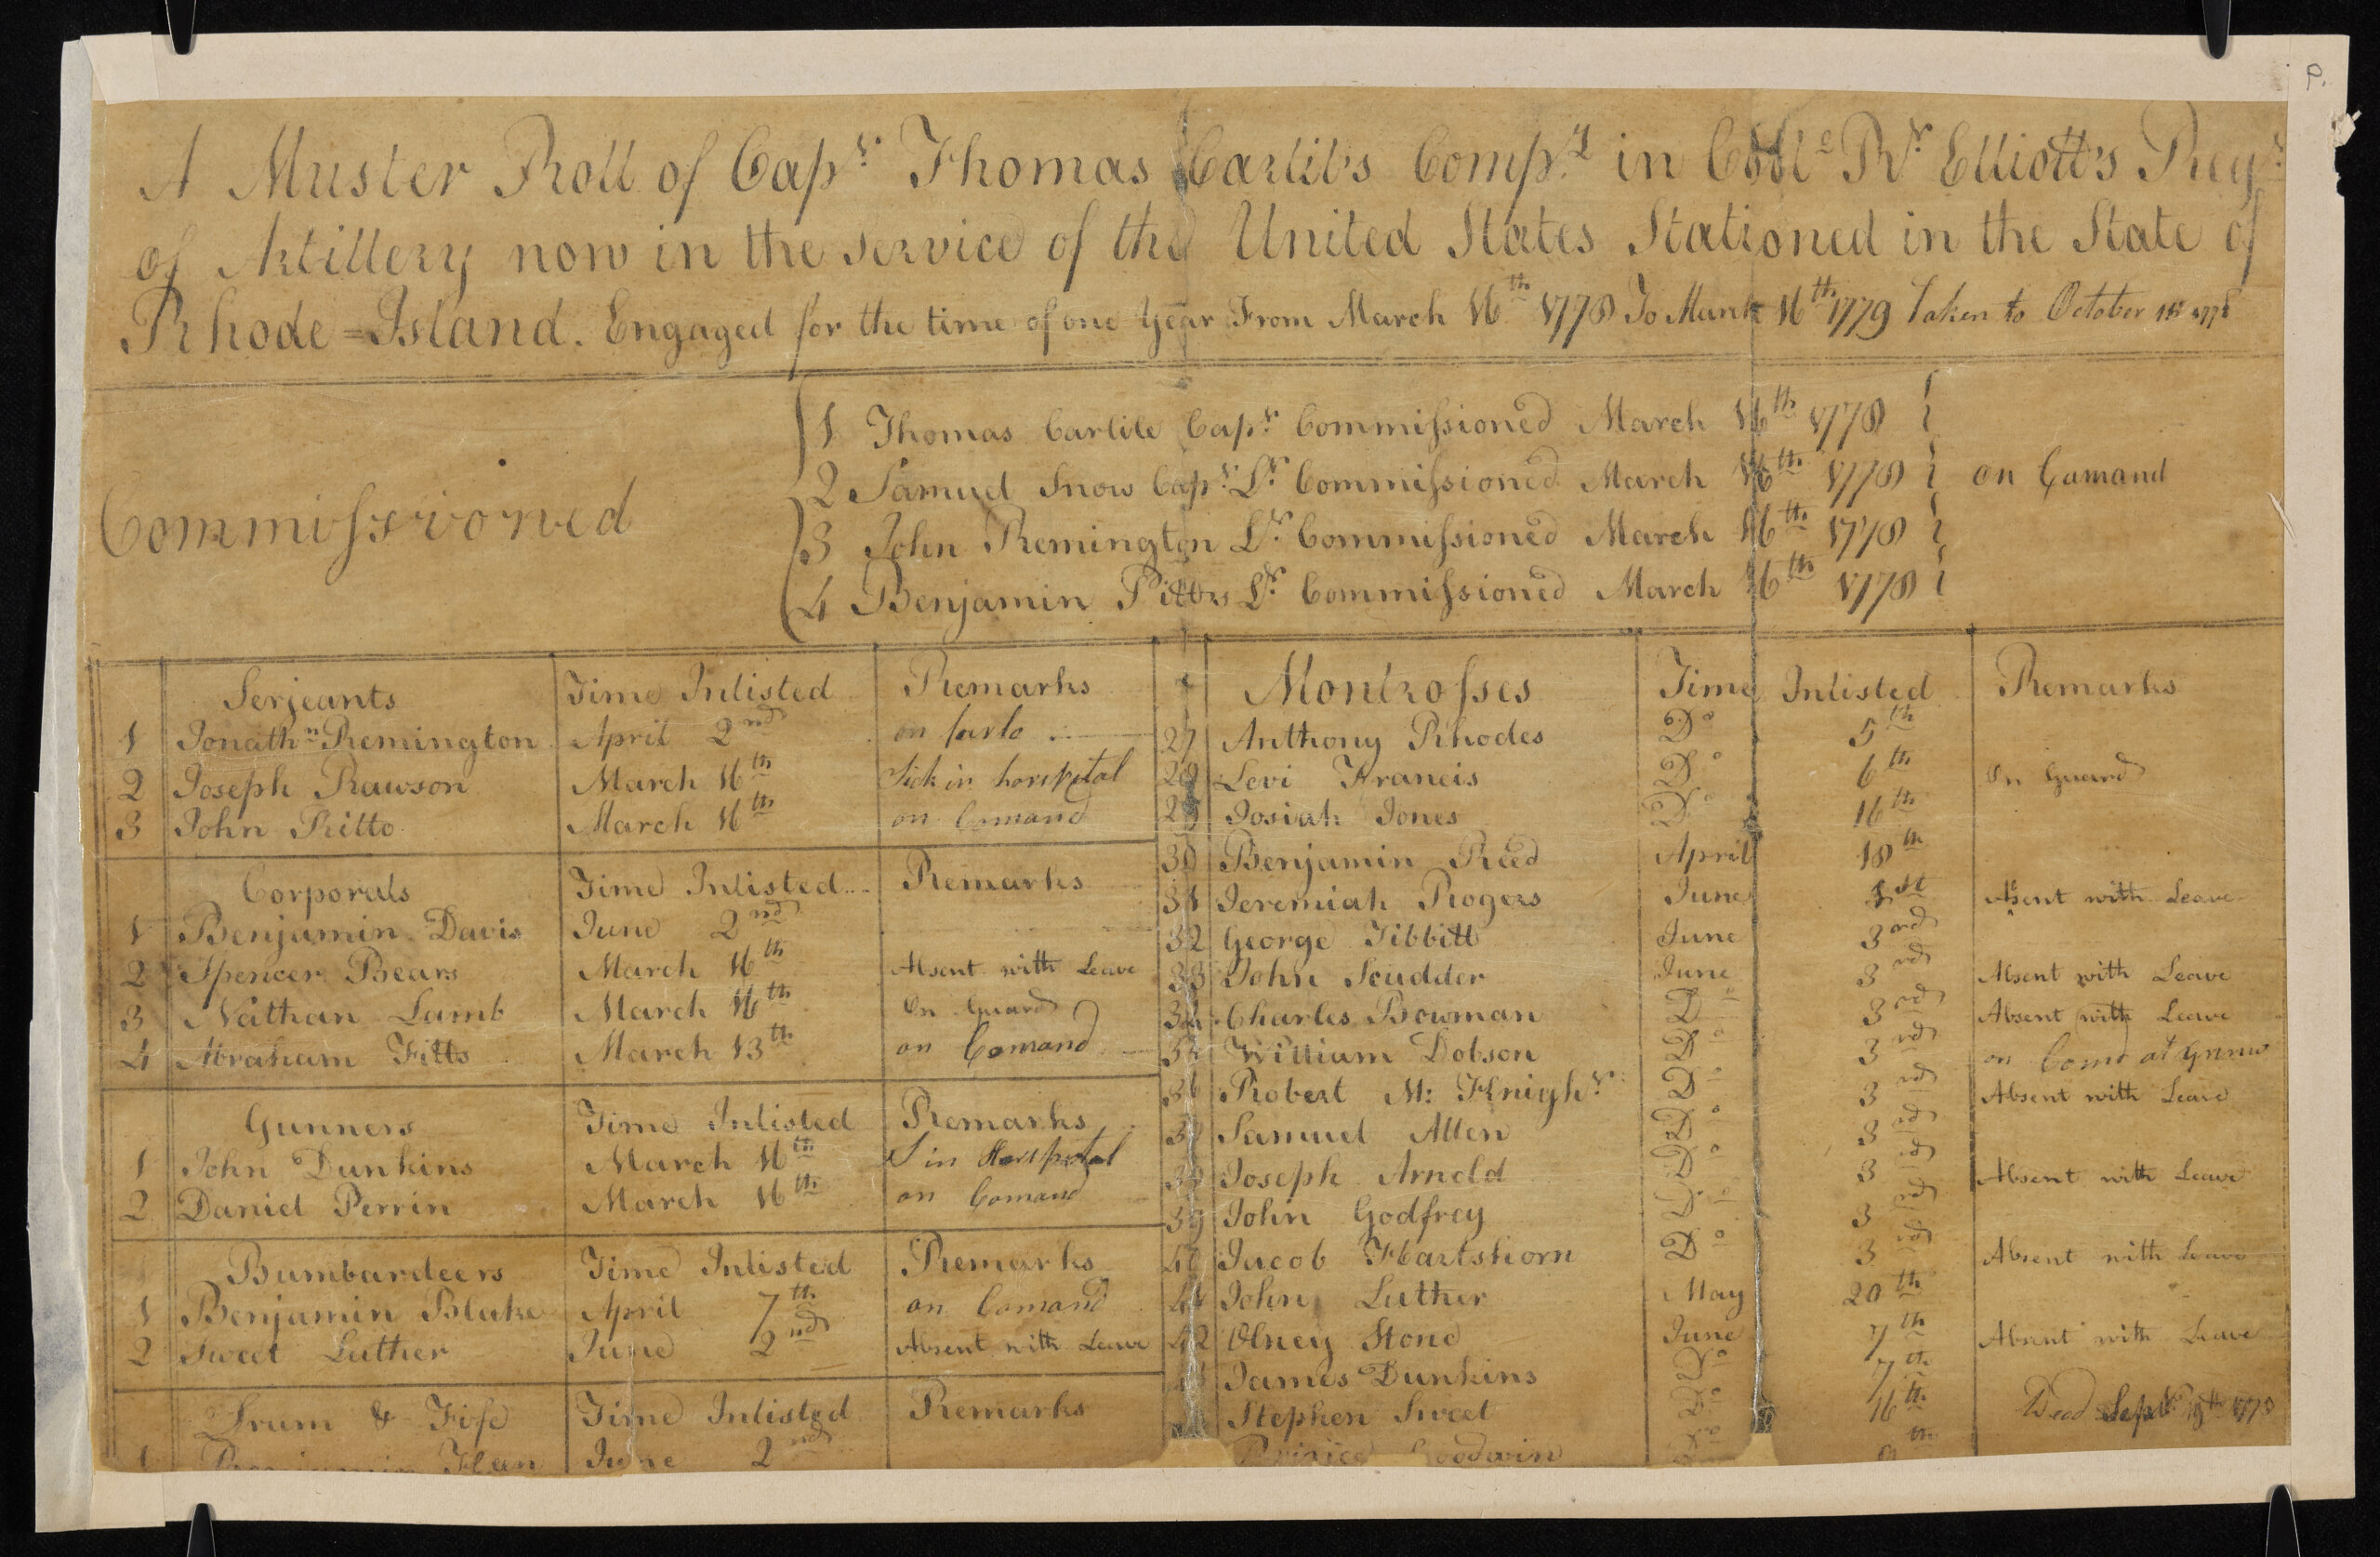 P.
A Muster Roll of Capt Thomas Carlile's Compy in Colle Rt Elliott's Regt
of Artillery now in the service of the United States Stationed in the State of
Rhode=Island. Engaged for the time of one Year From March 16th 1778 To March 16th 1779 Taken to October 1st 1778
Commissioned
1 Thomas Carlile Capt Commissioned March 16th 1778
2 Samuel Snow Capt Lt Commissioned March 16th 1778 on Comand
3 John Remington Lt Commissioned March 16th 1778
4 Benjamin Pitts Lt Commissioned March 16th 1778
Serjeants Time Inlisted Remarks
1 Jonathn Remington April 2nd on furlo
2 Joseph Rawson March 16th Sick in horspetal
3 John Kitto March 16th on Comand
Corporals Time Inlisted Remarks
1 Benjamin Davis June 2nd
2 Spencer Bears March 16th Absent with Leave
3 Nathan Lamb March 16th On Guard
4 Abraham Fitts March 13th on Comand
Gunners Time Inlisted Remarks
1 John Dunkins March 16th S in Hospetal
2 Daniel Perrin March 16th on Comand
Bumbardeers Time Inlisted Remarks
1 Benjamin Blake April 7th on Comand
2 Sweet Luther June 2nd Absent with Leave
Drum & Fife Time Inlisted Remarks
1 June 2nd
Montrosses Time Inlisted Remarks
27 Anthony Rhodes Do 5th
28 Levi Francis Do 6th On Guard
29 Josiah Jones Do 16th
30 Benjamin Reed April 18th
31 Jeremiah Rogers June 1st Absent with Leave
32 George Tibbitt June 3rd
33 John Scudder June 3rd Absent with Leave
34 Charles Bowman Do 3rd Absent with Leave
35 William Dobson Do 3rd on Comd at
36 Robert M: Knight Do 3rd Absent with Leave
37 Samuel Allen Do 3rd
38 Joseph Arnold Do 3rd Absent with Leave
39 John Godfrey Do 3rd
40 Jacob Hartshorn Do 3rd Absent with Leave
41 John Luther May 20th
42 Olney Stone June 7th Absent with Leave
43 James Dunkins Do 7th
Stephen Sweet Do 16th Dead Septr 19th 1778
Goodwin Do 9th